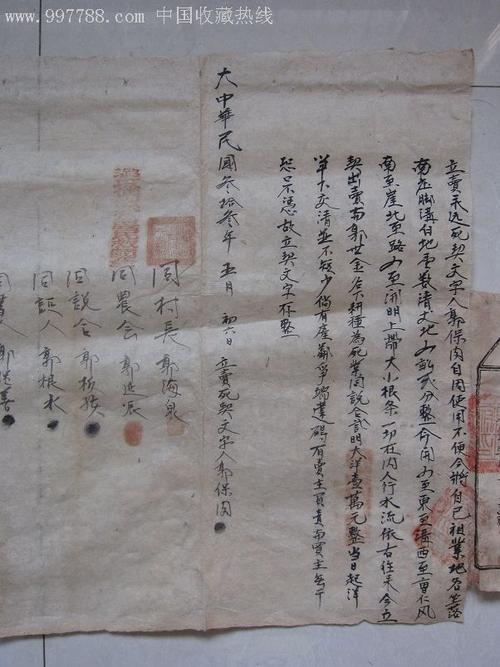 www.997788.com 中国收藏热线
立賣永遠死契文字人郭保肉自因使用不便今將自己祖業地名坐落
南崖脚溝白地弍數清丈地分整合開四至東至溝西至曹仁风
南至崖北至路四至開明上帶大小根条一切在內人行水流依古往來今立
契出賣與郭世金名下耕種為死業同說合言明大洋壹萬元整當日起洋
筆下交清並不短少倘有產業爭端違碍有賣主一面承當與買主無干
恐口不憑故立契文字存整
大中華民國叁拾叁年 五月 初六日 立賣死契文字人郭保肉
同村長 郭海泉
同農会 郭廷宸
同說合 郭
同說人 郭根水
同書 郭